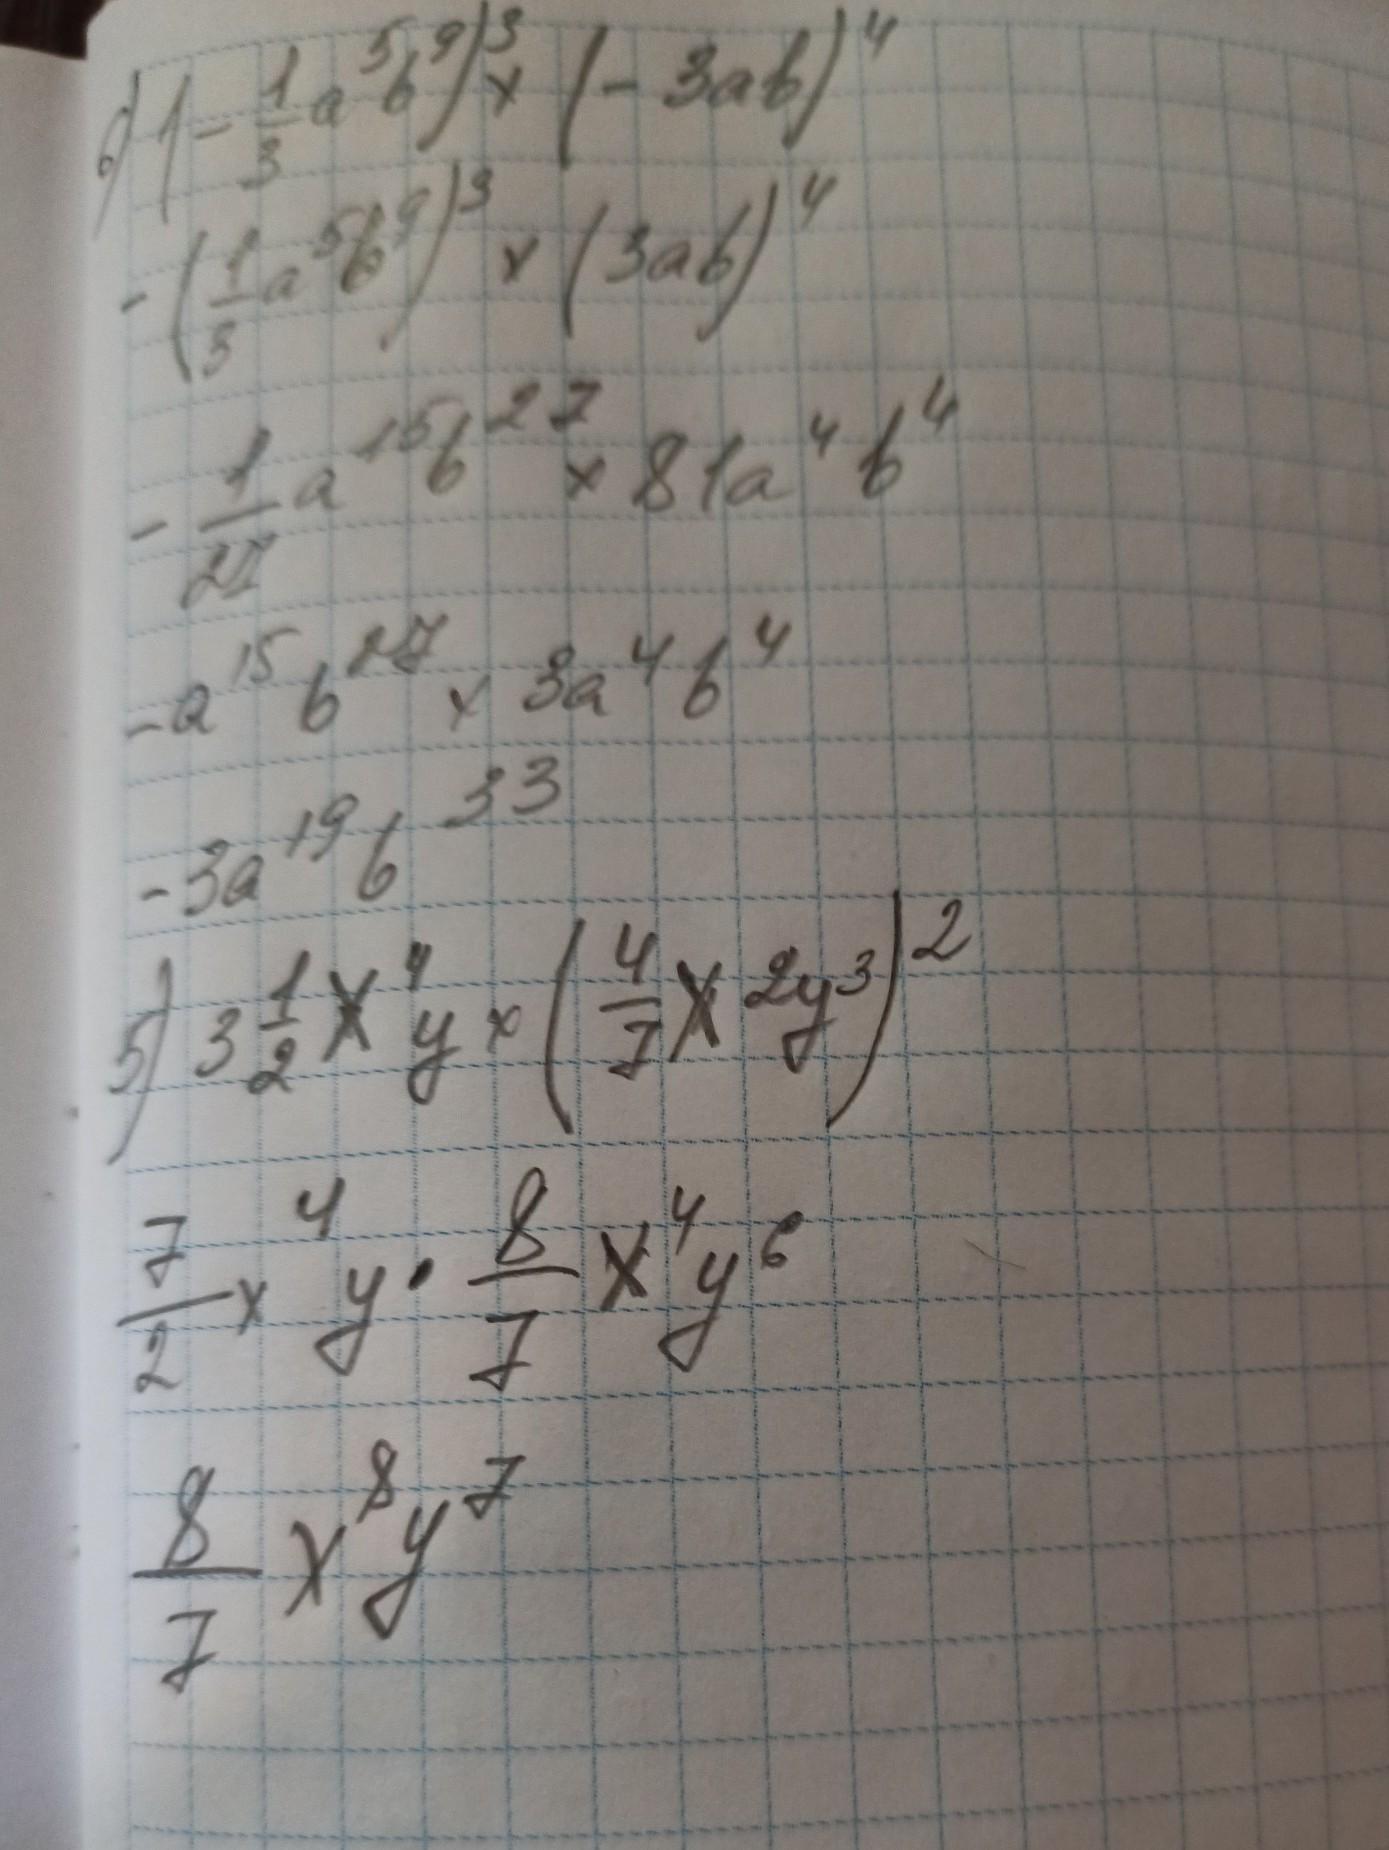 б) (- 1/3 a⁵b⁹)³ × (- 3ab)⁴
- (1/3 a⁵b⁹)³ × (3ab)⁴
- 1/27 a¹⁵b²⁷ × 81a⁴b⁴
- a¹⁵b²⁷ × 3a⁴b⁴
- 3a¹⁹b³³
5) 3 1/2 x⁴y × (4/7 x²y³)²
7/2 x⁴y · 8/7 x⁴y⁶
8/7 x⁸y⁷